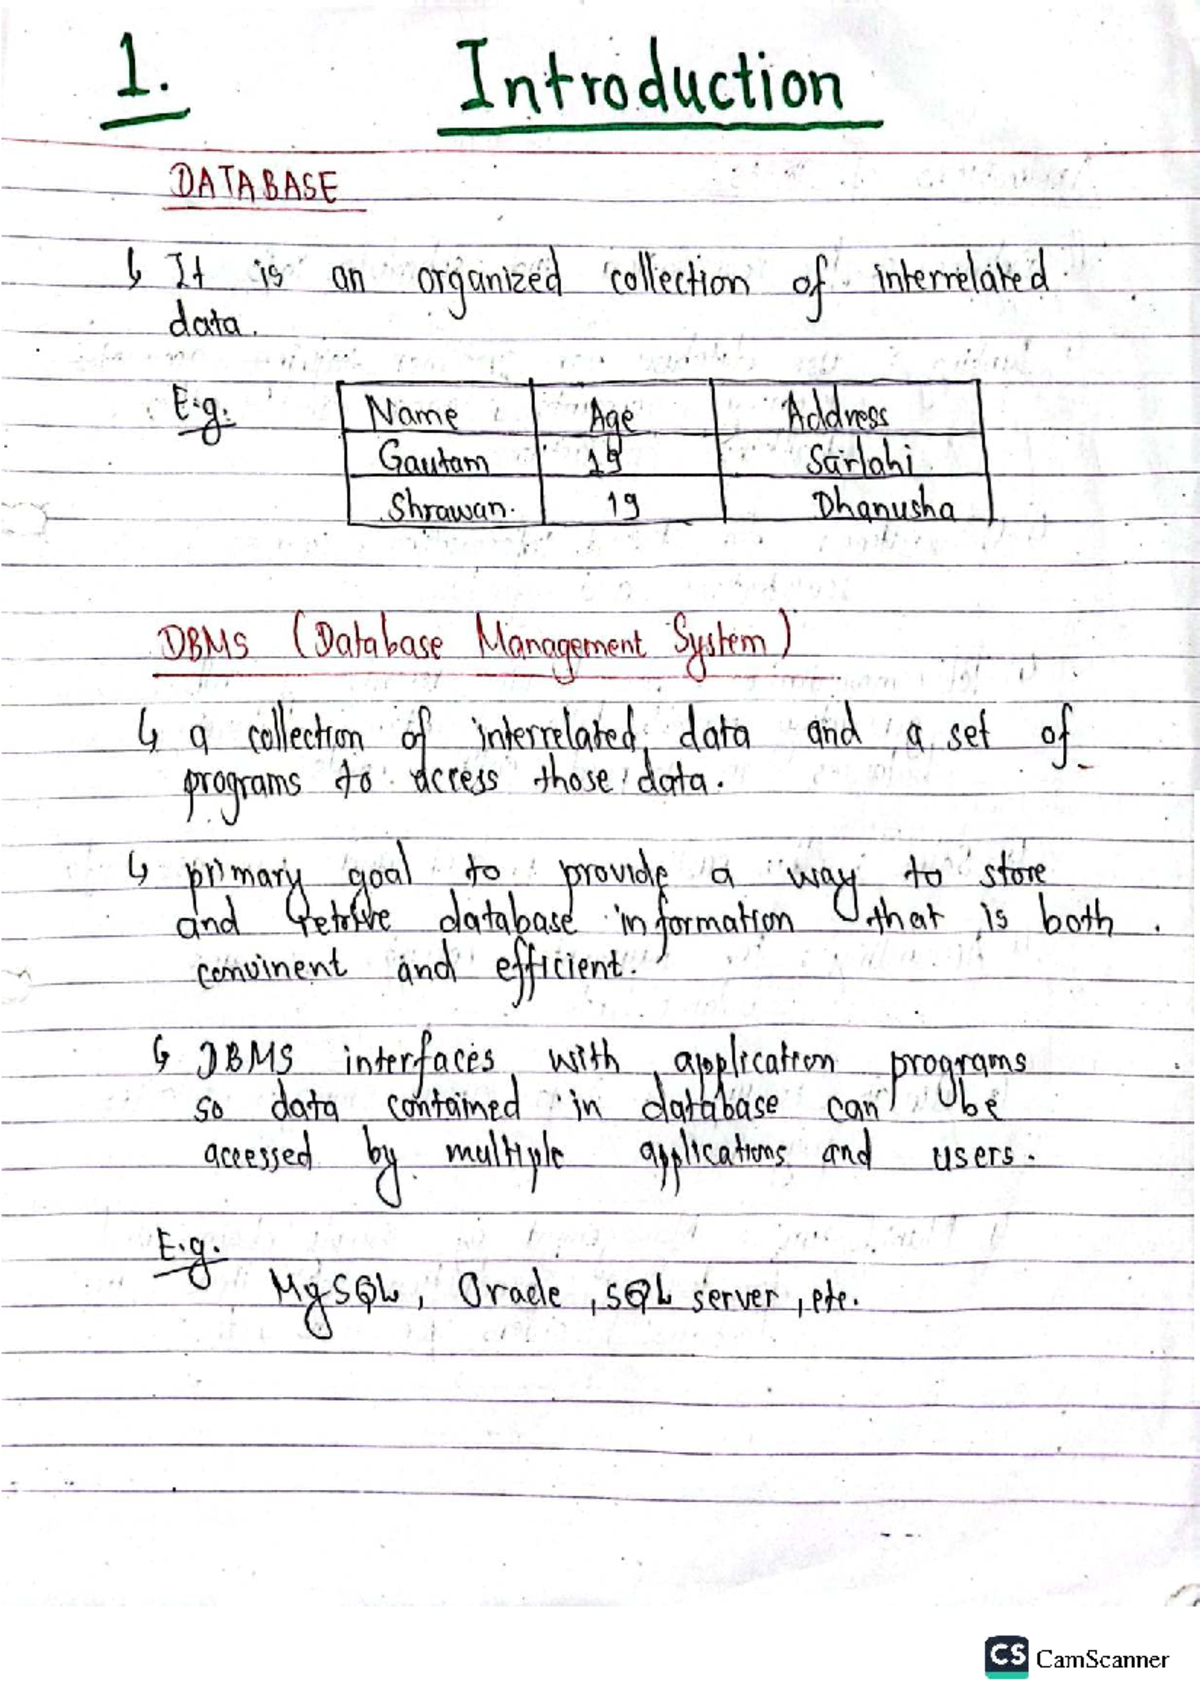 1. Introduction
DATABASE
↳ It is an organized collection of interrelated
data.
E.g. Name Age Address
Gautam 19 Sarlahi
Shrawan. 19 Dhanusha
DBMS (Database Management System)
↳ a collection of interrelated data and a set of
programs to access those data.
↳ primary goal to provide a way to store
and retrive database information that is both
convinent and efficient.
↳ DBMS interfaces with application programs
so data contained in database can be
accessed by multiple applications and users.
E.g.
MySQL, Oracle, SQL server, etc.
CS CamScanner